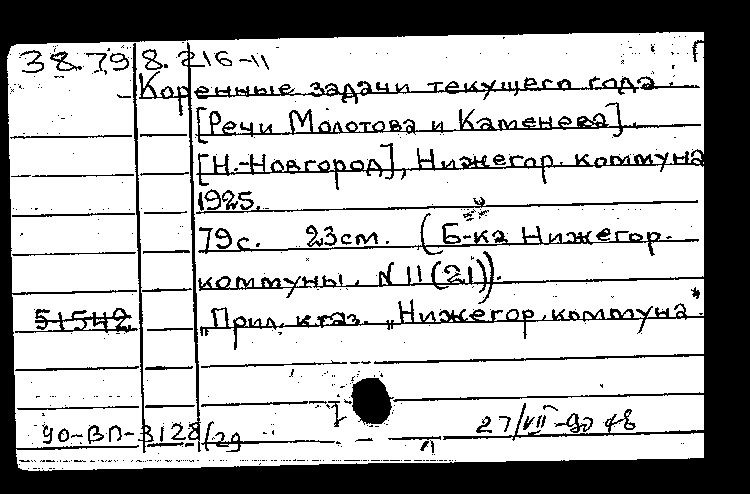 38.79 8.216-11 П
Коренные задачи текущего года.
[Речи Молотова и Каменева].
[Н.-Новгород], Нижегор. коммуна
1925.
79 с. 23 см. (Б-ка Нижегор.
коммуны. N 11 (21)).
51542 „Прил. к газ. „Нижегор. коммуна".
90-ВП-3128/29 27/VII-90